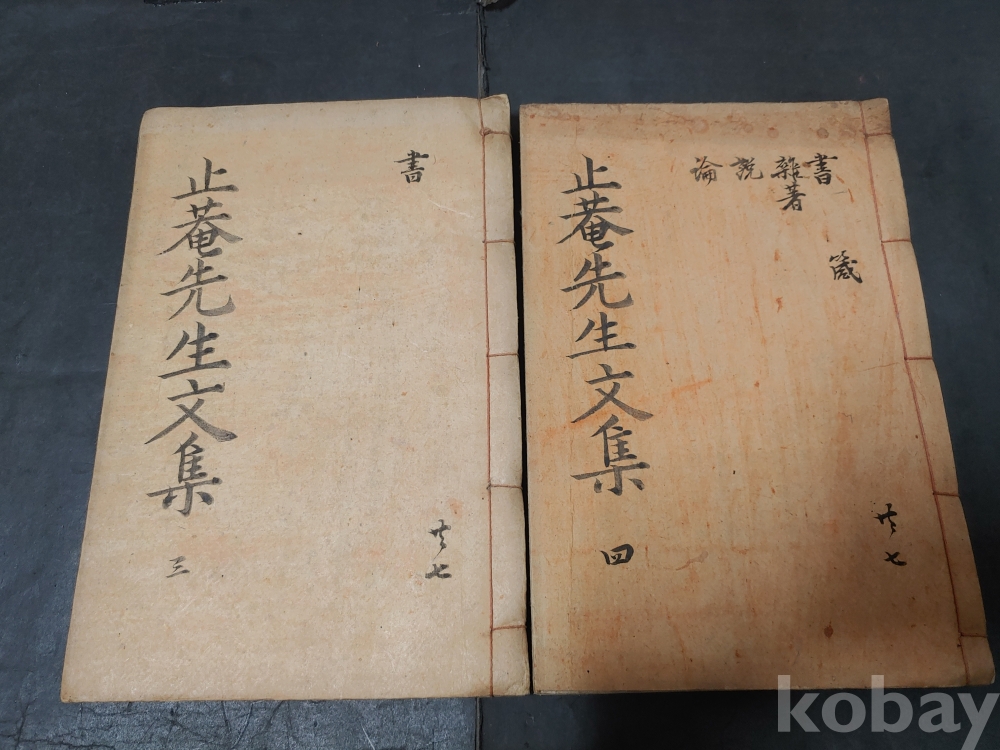 止菴先生文集 三
書
共七
止菴先生文集 四
書
雜著
說
論
箴
共七
kobay